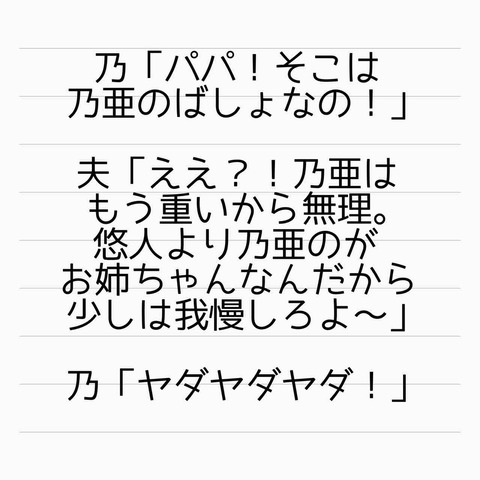 乃「パパ！そこは
乃亜のばしょなの！」
夫「ええ？！乃亜は
もう重いから無理。
悠人より乃亜のが
お姉ちゃんなんだから
少しは我慢しろよ〜」
乃「ヤダヤダヤダ！」